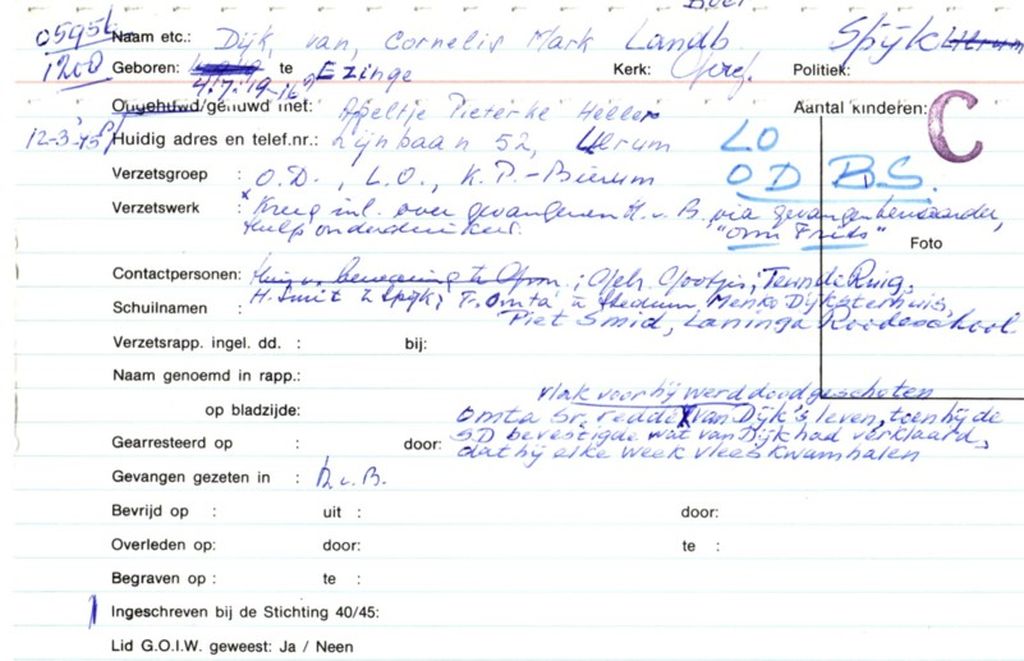 Boer
05956 Naam etc.: Dijk, van, Cornelis Mark Landb. Spijk Ulrum
1200 Geboren: te Ezinge Kerk: Geref. Politiek:
4.7.19-16
Ongehuwd/gehuwd met: Afeltje Pieterke Heller Aantal kinderen: C
12-3-'45 Huidig adres en telef.nr.: Lijnbaan 52, Ulrum LO
Verzetsgroep : O.D., L.O., K.P.-Bierum OD B.S.
Verzetswerk : Kreeg inl. over gevangenen H.v.B. via gevangenbewaarder,
Hulp onderduikers. "Om Frits"
Foto
Contactpersonen: ; Geh. Teun de Ruig,
H. Smit te Spijk, Fr. Omta te Stedum, Menko Dijksterhuis,
Schuilnamen :
Piet Smid, Laninga Roodeschool
Verzetsrapp. ingel. dd. : bij:
Naam genoemd in rapp.:
vlak voor hij werd doodgeschoten
op bladzijde:
Omta Sr. redde van Dijk's leven, toen hij de
Gearresteerd op : door: SD bevestigde wat van Dijk had verklaard,
dat hij elke week vlees kwam halen
Gevangen gezeten in : H.v.B.
Bevrijd op : uit : door:
Overleden op: door: te :
Begraven op : te :
Ingeschreven bij de Stichting 40/45:
Lid G.O.I.W. geweest: Ja / Neen